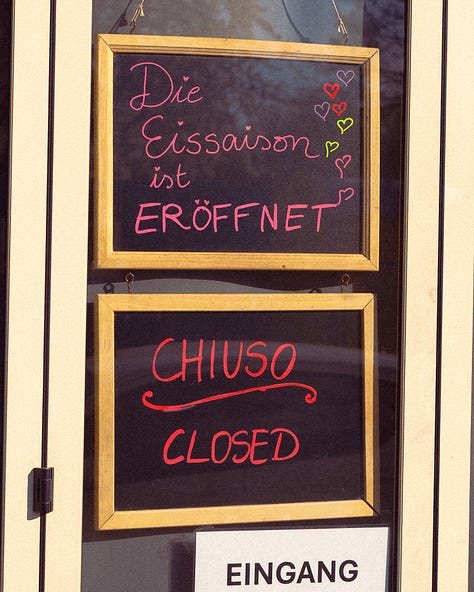 Die
Eissaison
ist
ERÖFFNET
CHIUSO
CLOSED
EINGANG